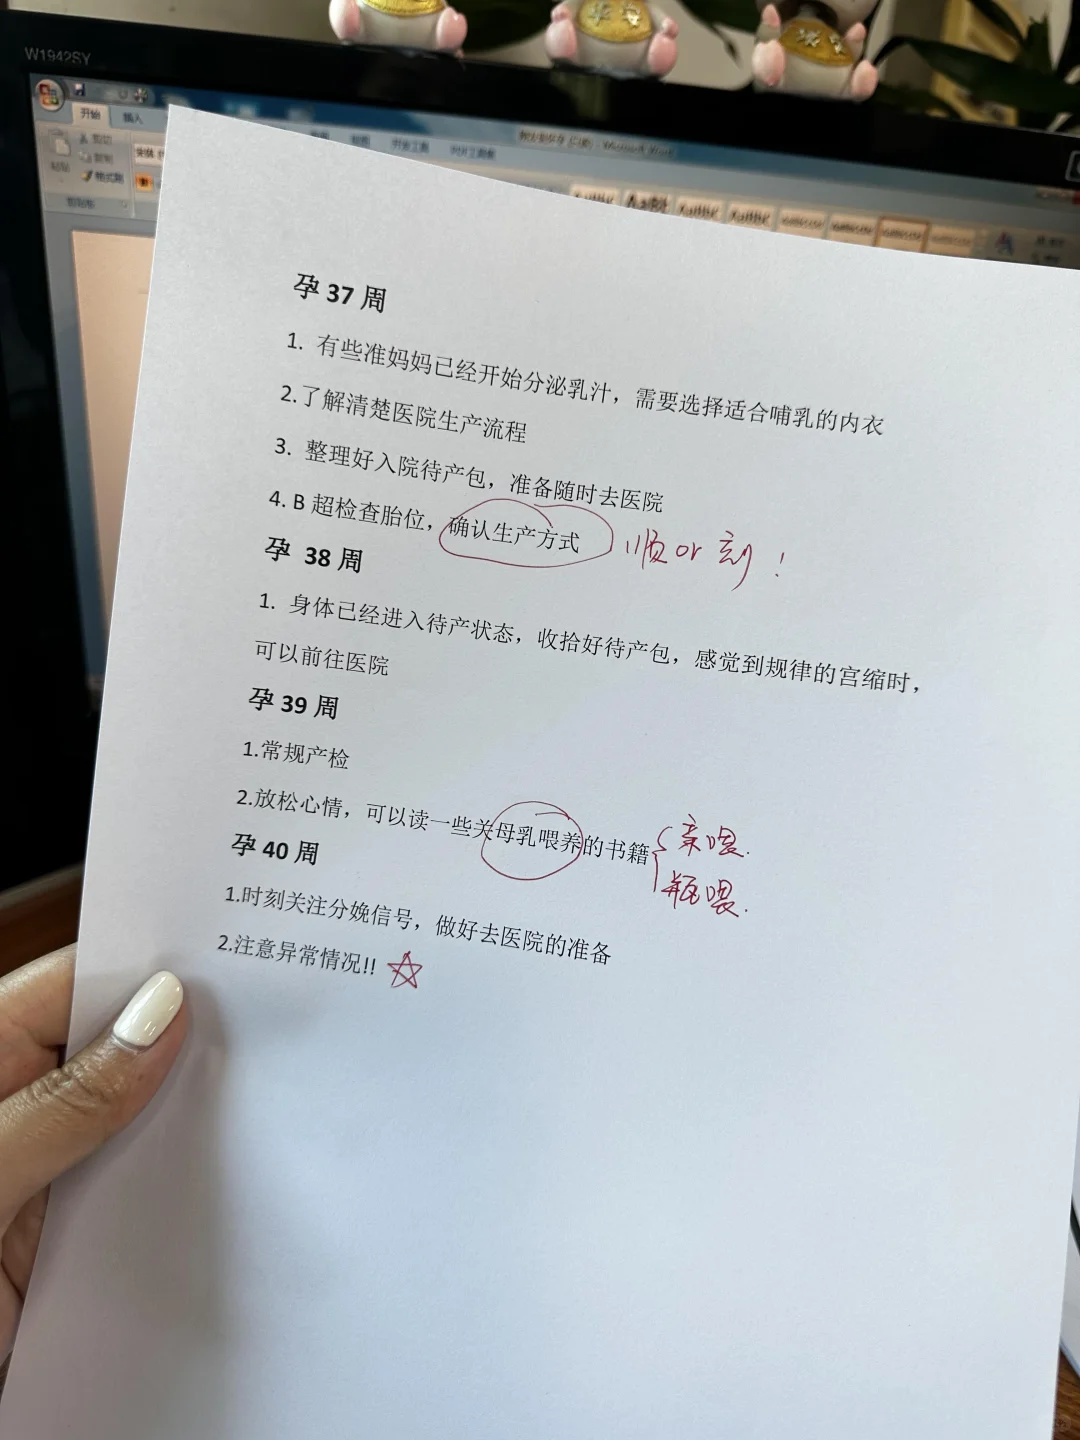 W1942SY
开始 插入
剪切
复制
粘贴
格式刷
剪贴板
Microsoft Word
孕 37 周
1. 有些准妈妈已经开始分泌乳汁，需要选择适合哺乳的内衣
2.了解清楚医院生产流程
3. 整理好入院待产包，准备随时去医院
4. B 超检查胎位，确认生产方式 顺or刻！
孕 38 周
1. 身体已经进入待产状态，收拾好待产包，感觉到规律的宫缩时，
可以前往医院
孕 39 周
1.常规产检
2.放松心情，可以读一些关母乳喂养的书籍 亲喂.
瓶喂.
孕 40 周
1.时刻关注分娩信号，做好去医院的准备
2.注意异常情况!!